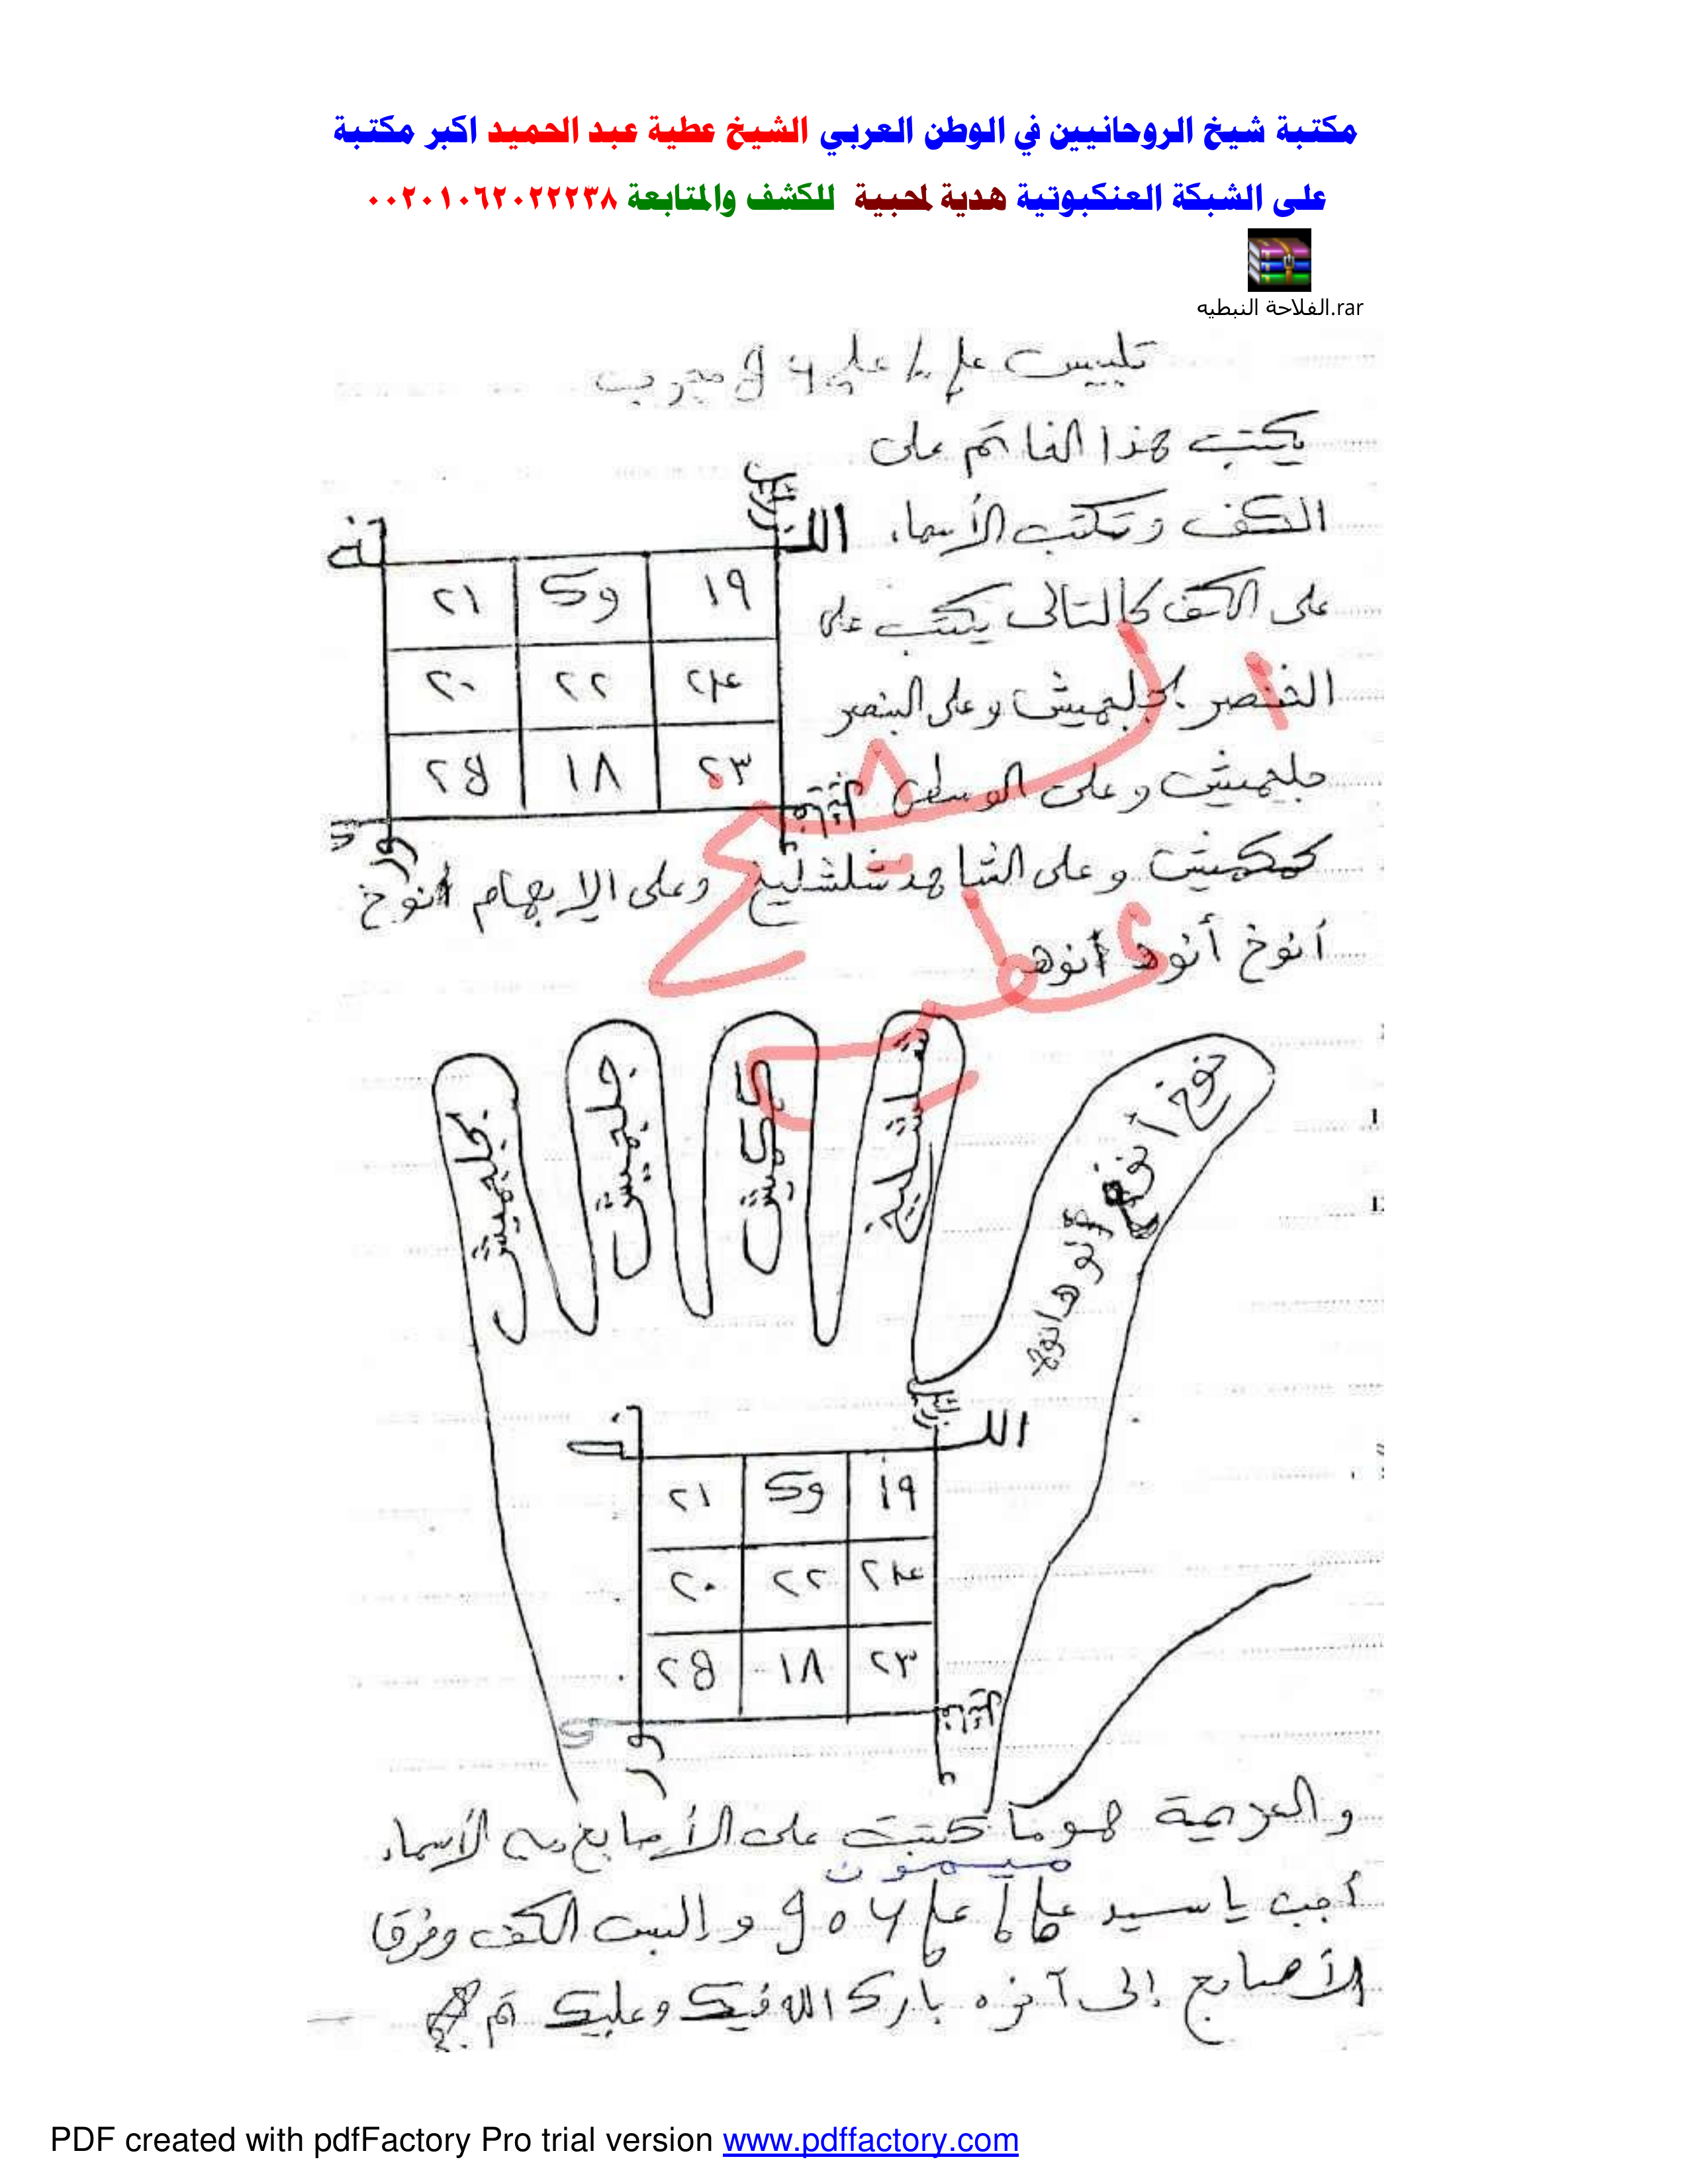 مكتبة شيخ الروحانيين في الوطن العربي الشيخ عطية عبد الحميد اكبر مكتبة
على الشبكة العنكبوتية هدية لمحبية للكشف والمتابعة ٠٠٢٠١٠٦٢٠٢٢٢٣٨
الفلاحة النبطيه.rar
تلبيس مجرب
يكتب هذا الخاتم على
الكف وتكتب الأسماء
على الكف كالتالى يكتب على
الخنصر بجلهميش وعلى البنصر
جلهميش وعلى الوسطى
كمكميش وعلى الشاهد شلشليع وعلى الإبهام أنوخ
أنوخ أنوه أنوه
١٩ وك ٢١
٢٤ ٢٢ ٢٠
٢٣ ١٨ ٢٥
الشيخ عطيه
بجلهميش
جلهميش
ككميش
نوخ أنوخ أنوه انوه
١٩ وك ٢١
٢٤ ٢٢ ٢٠
٢٣ ١٨ ٢٥
والعزيمة هو ما كتبت على الأصابع من الأسماء
ميمون
أجب يا سيد و إلبس الكف وفرق
الأصابع إلى آخره بارك الله فيك وعليك تم
PDF created with pdfFactory Pro trial version www.pdffactory.com